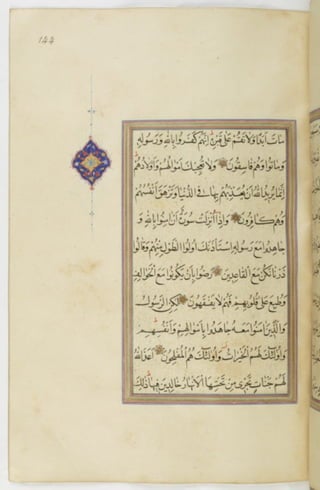 ١٤٤
مات ابدا ولا تقم على قبره انهم كفروا بالله ورسوله
وماتوا وهم فاسقون ولا تعجبك اموالهم واولادهم
انما يريد الله ان يعذبهم بها في الدنيا وتزهق انفسهم
وهم كافرون واذا انزلت سورة ان امنوا بالله و
جاهدوا مع رسوله استأذنك اولوا الطول منهم وقالوا
ذرنا نكن مع القاعدين رضوا بان يكونوا مع الخوالف
وطبع على قلوبهم فهم لا يفقهون لكن الرسول
والذين امنوا معه جاهدوا باموالهم وانفسهم
واولئك لهم الخيرات واولئك هم المفلحون اعد الله
لهم جنات تجري من تحتها الانهار خالدين فيها ذلك